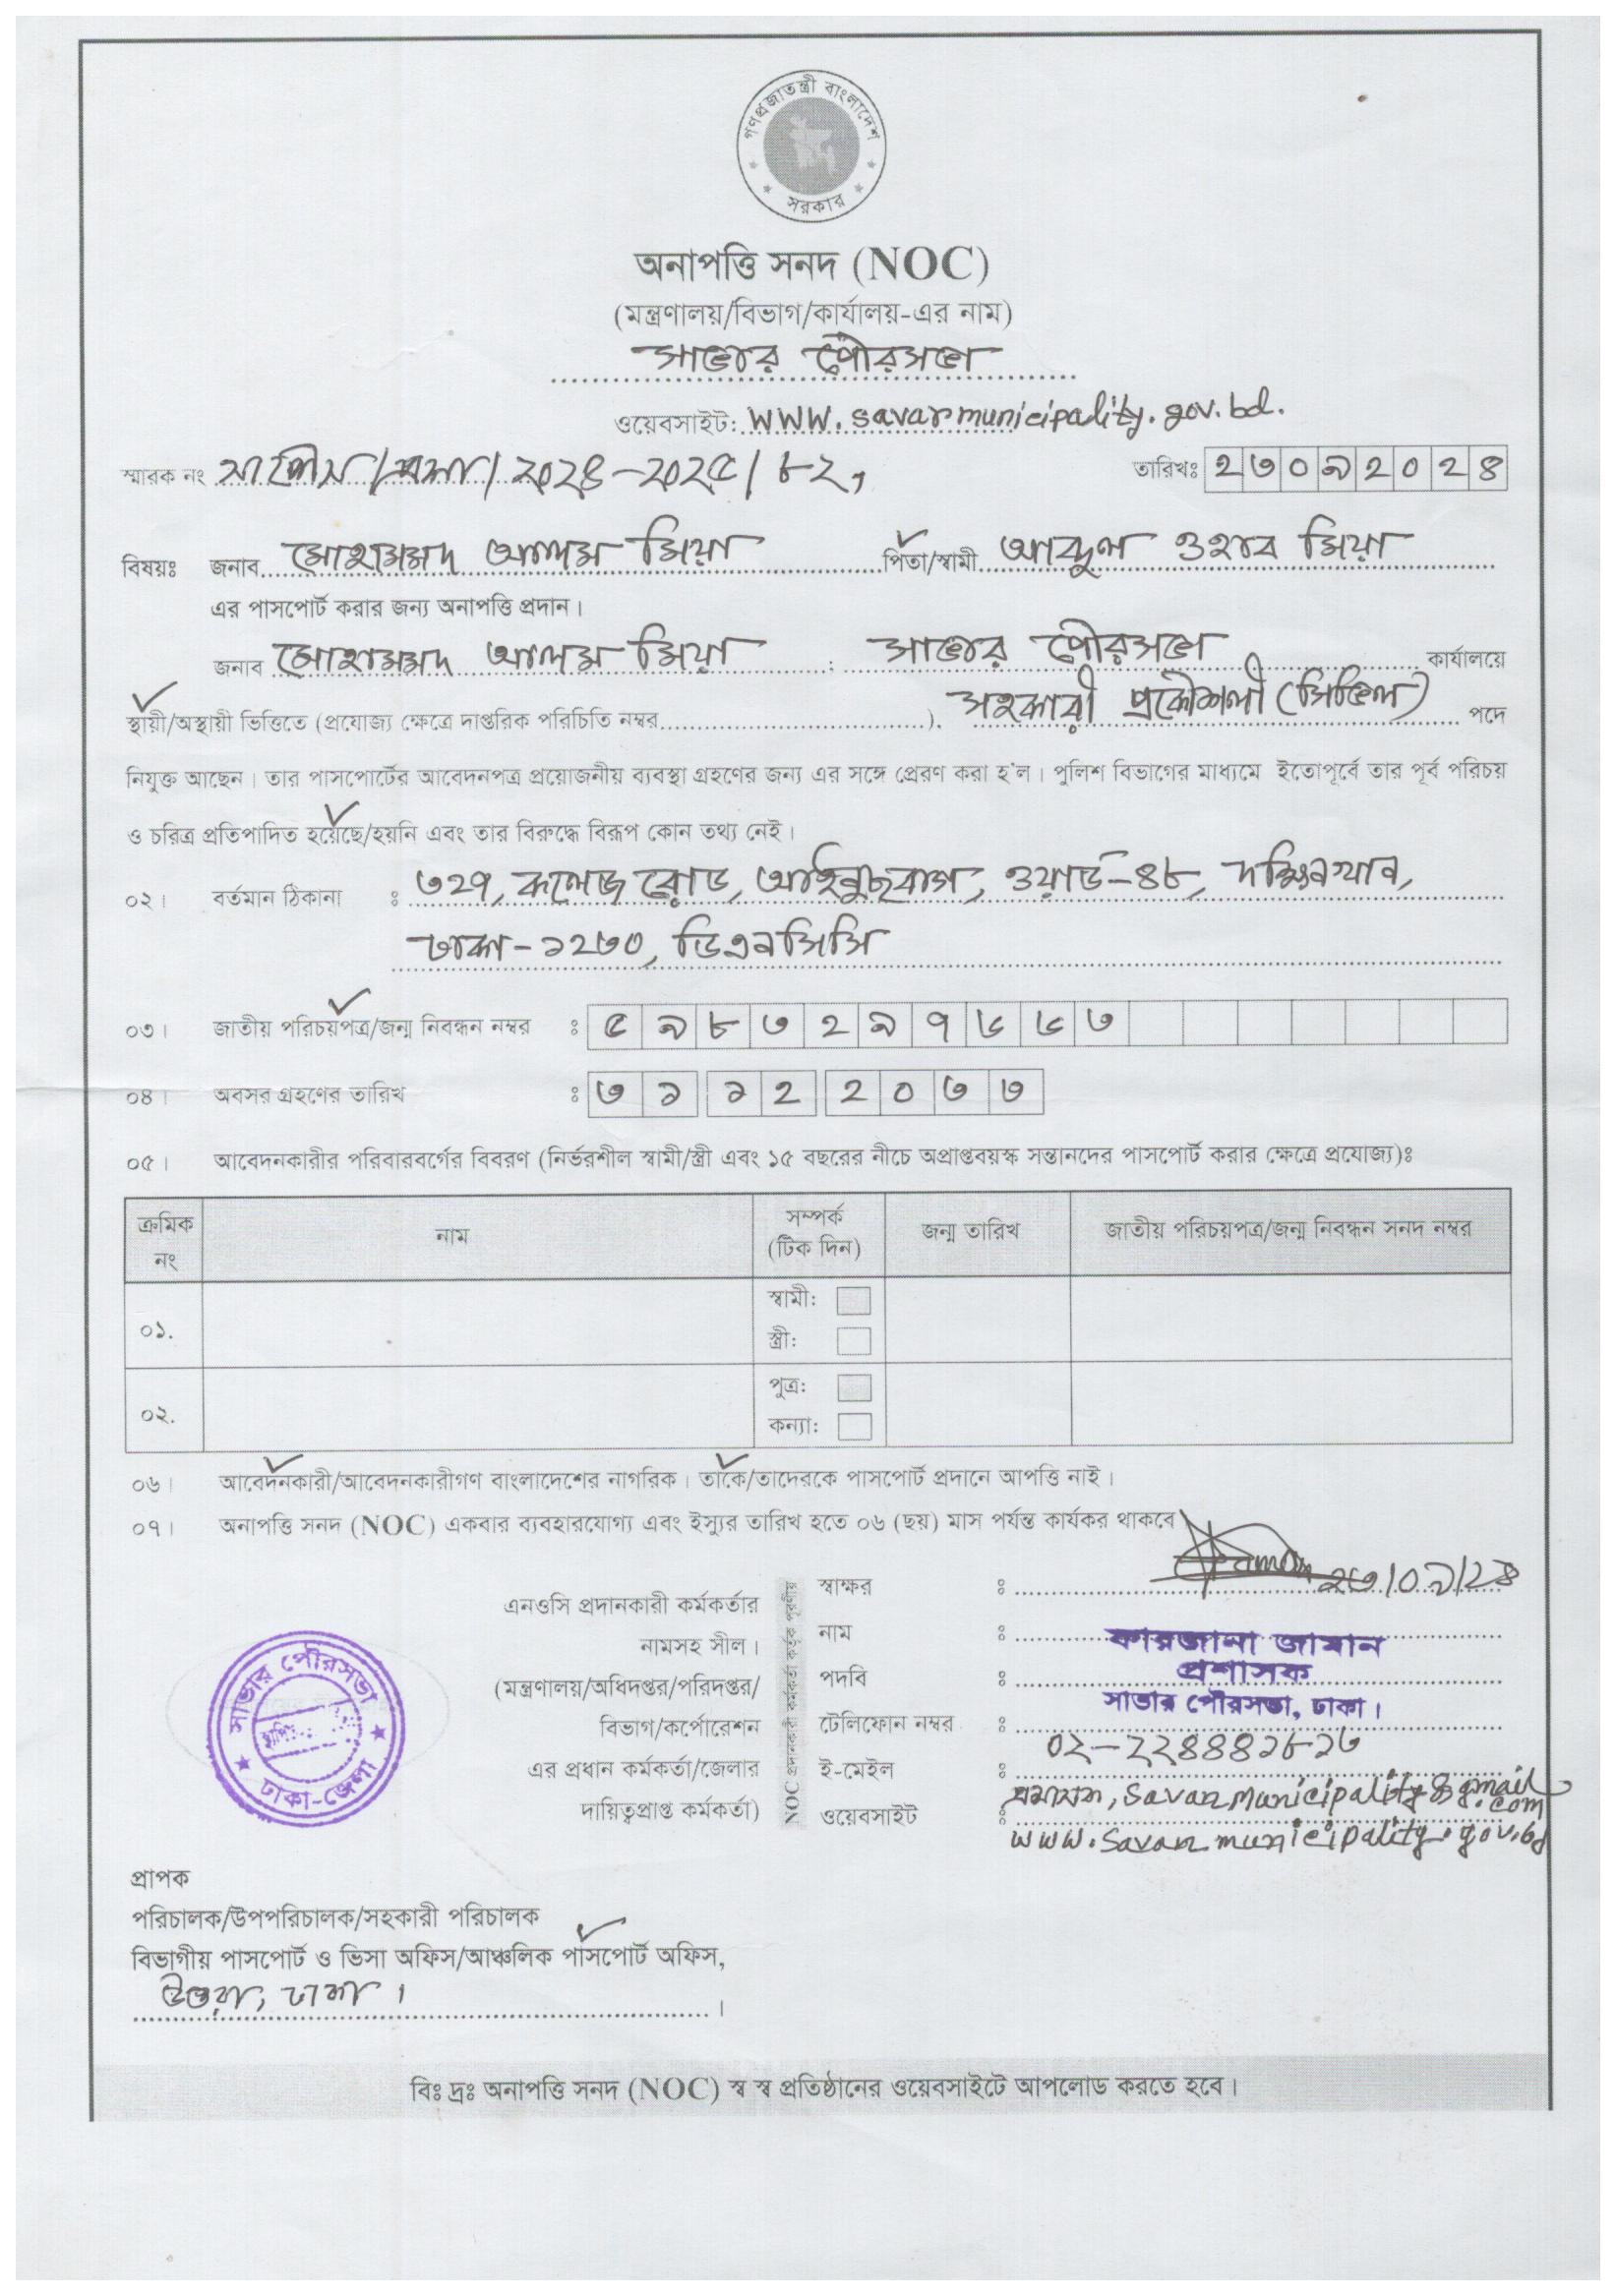 গণপ্রজাতন্ত্রী বাংলাদেশ
সরকার
অনাপত্তি সনদ (NOC)
(মন্ত্রণালয়/বিভাগ/কার্যালয়-এর নাম)
সাভার পৌরসভা
ওয়েবসাইট: www.savarmunicipality.gov.bd.
স্মারক নং সাপৌস/প্রশা/২০২৪-২০২৫/৮২, তারিখঃ ২৩০৯২০২৪
বিষয়ঃ জনাব মোহাম্মদ আলম মিয়া পিতা/স্বামী আব্দুল ওহাব মিয়া
এর পাসপোর্ট করার জন্য অনাপত্তি প্রদান।
জনাব মোহাম্মদ আলম মিয়া : সাভার পৌরসভা কার্যালয়ে
স্থায়ী/অস্থায়ী ভিত্তিতে (প্রযোজ্য ক্ষেত্রে দাপ্তরিক পরিচিতি নম্বর), সহকারী প্রকৌশলী (সিভিল) পদে
নিযুক্ত আছেন। তার পাসপোর্টের আবেদনপত্র প্রয়োজনীয় ব্যবস্থা গ্রহণের জন্য এর সঙ্গে প্রেরণ করা হ'ল। পুলিশ বিভাগের মাধ্যমে ইতোপূর্বে তার পূর্ব পরিচয়
ও চরিত্র প্রতিপাদিত হয়েছে/হয়নি এবং তার বিরুদ্ধে বিরূপ কোন তথ্য নেই।
০২। বর্তমান ঠিকানা ঃ ৩২৭, কলেজ রোড, আইনুছবাগ, ওয়ার্ড-৪৮, দক্ষিনখান,
ঢাকা-১২৩০, ডিএনসিসি
০৩। জাতীয় পরিচয়পত্র/জন্ম নিবন্ধন নম্বর ঃ ৫৯৮৩২৯৭৬৬৩
০৪। অবসর গ্রহণের তারিখ ঃ ৩১ ১২ ২০৩৩
০৫। আবেদনকারীর পরিবারবর্গের বিবরণ (নির্ভরশীল স্বামী/স্ত্রী এবং ১৫ বছরের নীচে অপ্রাপ্তবয়স্ক সন্তানদের পাসপোর্ট করার ক্ষেত্রে প্রযোজ্য)ঃ
ক্রমিক নং নাম সম্পর্ক (টিক দিন) জন্ম তারিখ জাতীয় পরিচয়পত্র/জন্ম নিবন্ধন সনদ নম্বর
০১. স্বামী:
স্ত্রী:
০২. পুত্র:
কন্যা:
০৬। আবেদনকারী/আবেদনকারীগণ বাংলাদেশের নাগরিক। তাকে/তাদেরকে পাসপোর্ট প্রদানে আপত্তি নাই।
০৭। অনাপত্তি সনদ (NOC) একবার ব্যবহারযোগ্য এবং ইস্যুর তারিখ হতে ০৬ (ছয়) মাস পর্যন্ত কার্যকর থাকবে
এনওসি প্রদানকারী কর্মকর্তার
নামসহ সীল।
(মন্ত্রণালয়/অধিদপ্তর/পরিদপ্তর/
বিভাগ/কর্পোরেশন
এর প্রধান কর্মকর্তা/জেলার
দায়িত্বপ্রাপ্ত কর্মকর্তা)
NOC প্রদানকারী কর্মকর্তা কর্তৃক পূরণীয়
স্বাক্ষর ঃ ২৩/০৯/২৪
নাম ঃ ফারজানা জামান
পদবি ঃ প্রশাসক
সাভার পৌরসভা, ঢাকা।
টেলিফোন নম্বর ঃ ০২-২২৪৪৪১৮১৩
ই-মেইল ঃ savarmunicipality@gmail.com
ওয়েবসাইট ঃ www.savarmunicipality.gov.bd
সাভার পৌরসভা
ঢাকা-জেলা
প্রাপক
পরিচালক/উপপরিচালক/সহকারী পরিচালক
বিভাগীয় পাসপোর্ট ও ভিসা অফিস/আঞ্চলিক পাসপোর্ট অফিস,
উত্তরা, ঢাকা।
বিঃ দ্রঃ অনাপত্তি সনদ (NOC) স্ব স্ব প্রতিষ্ঠানের ওয়েবসাইটে আপলোড করতে হবে।